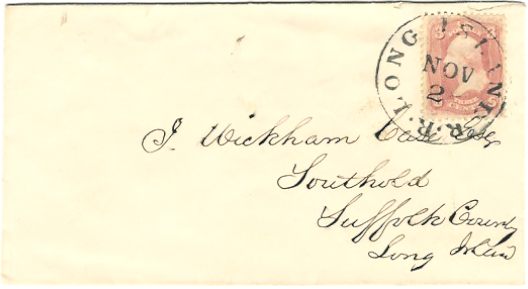 LONG ISLAND R.R.
NOV
2
J. Wickham Case Esq
Southold
Suffolk County
Long Island